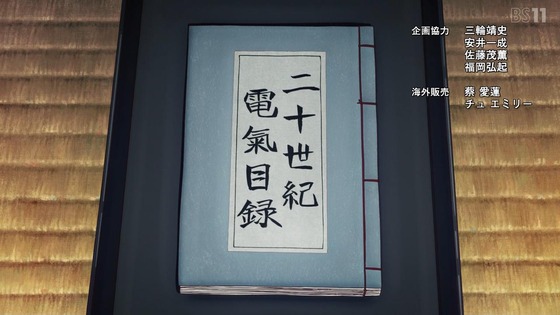 二十世紀
電氣目録
企画協力 三輪靖史
安井一成
佐藤茂薫
福岡弘起
海外販売 蔡 愛蓮
チュ エミリー
BS11